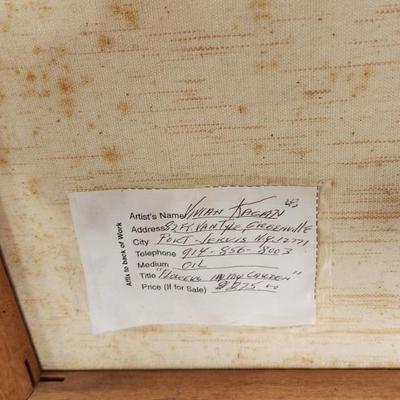 Artist's Name Vivian Kagan
Address Greenville
City Port Jervis N.Y. 12771
Telephone 914-856-8003
Medium OIL
Title "Flowers in my Garden"
Price (If for Sale) $275.00
Affix to back of Work